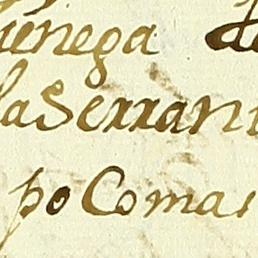 ienega de
la Serrani
po Comas